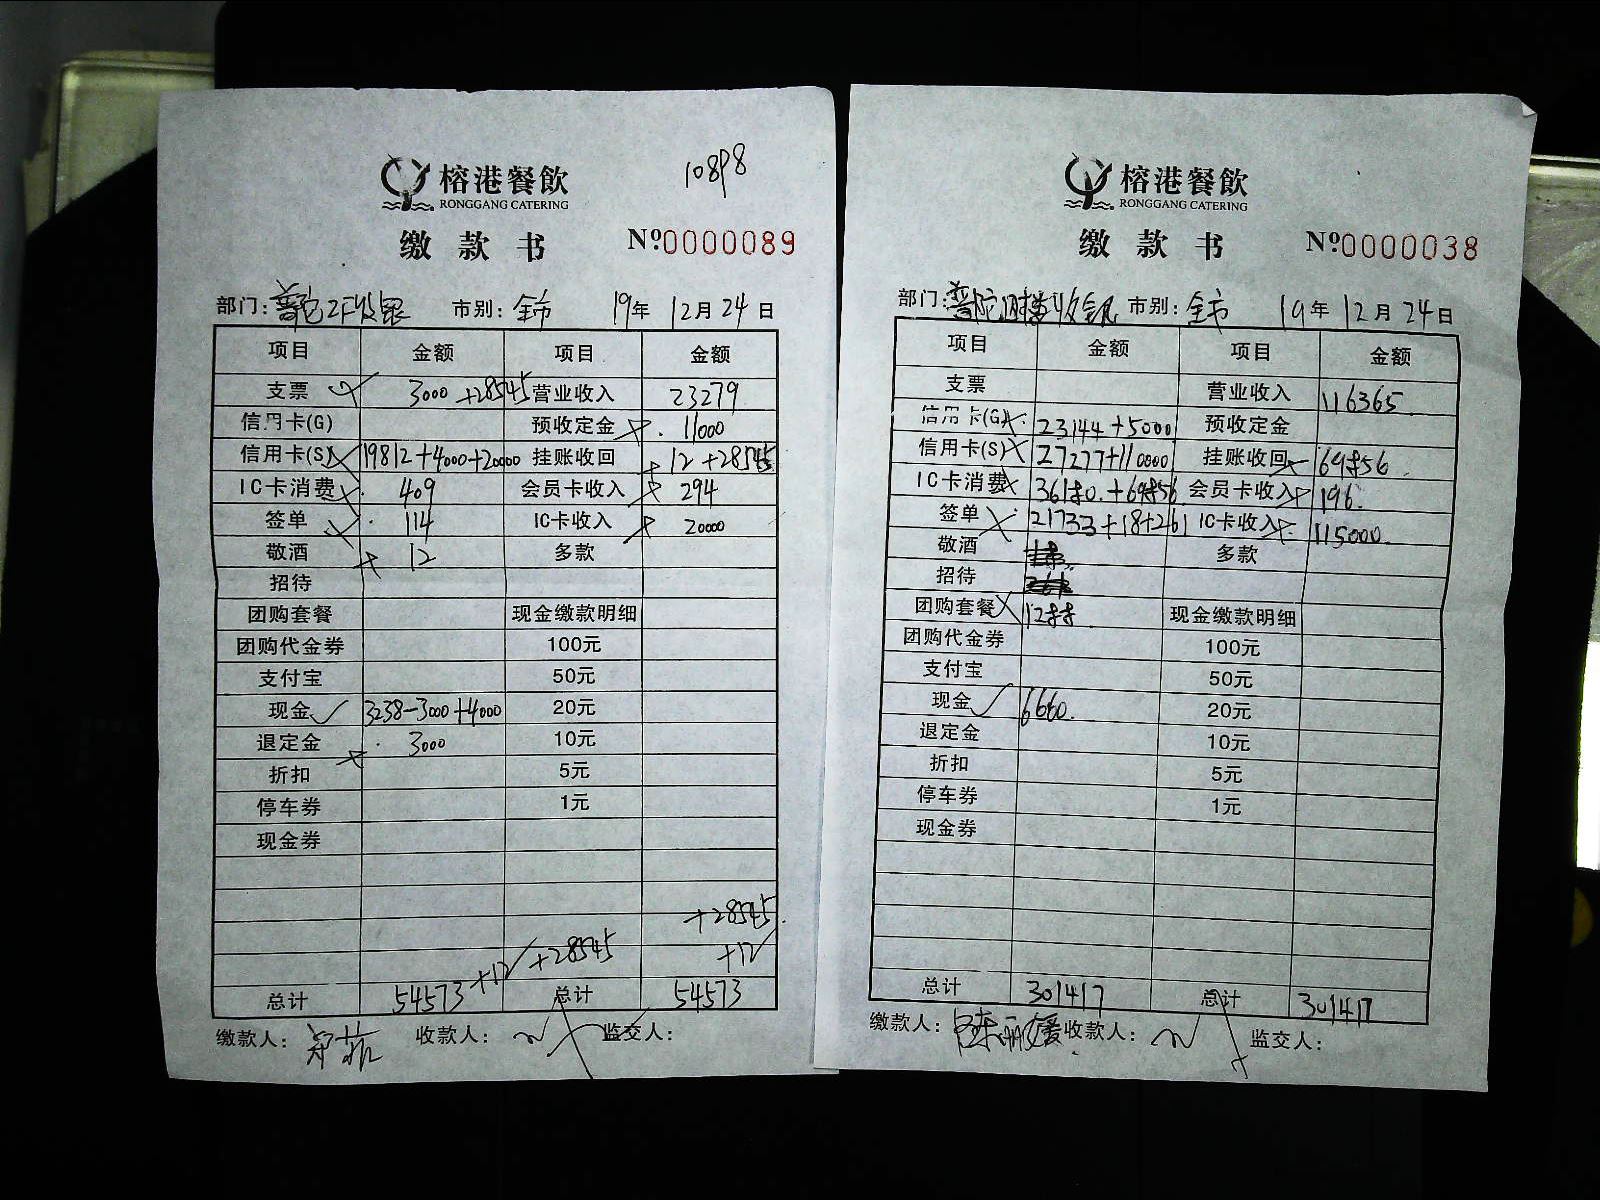 10898
榕港餐飲
RONGGANG CATERING
缴款书
№0000089
部门：普陀2F收银 市别：全市 19年12月24日
项目 金额 项目 金额
支票 3000+28545 营业收入 23279
信用卡(G) 预收定金 11000
信用卡(S) 19812+4000+20000 挂账收回 12+28545
IC卡消费 409 会员卡收入 294
签单 114 IC卡收入 20000
敬酒 12 多款
招待
团购套餐 现金缴款明细
团购代金券 100元
支付宝 50元
现金 3238-3000+4000 20元
退定金 3000 10元
折扣 5元
停车券 1元
现金券
+28545
+12 +28545 +12
总计 54573 总计 54573
缴款人： 收款人： 监交人：
榕港餐飲
RONGGANG CATERING
缴款书
№0000038
部门：普陀 收银 市别：全市 19年12月24日
项目 金额 项目 金额
支票 营业收入 116365
信用卡(G) 23144+5000 预收定金
信用卡(S) 27277+110000 挂账收回 69856
IC卡消费 36180+69856 会员卡收入 196
签单 21733+18+261 IC卡收入 115000
敬酒 多款
招待
团购套餐 1288 现金缴款明细
团购代金券 100元
支付宝 50元
现金 6660 20元
退定金 10元
折扣 5元
停车券 1元
现金券
总计 301417 总计 301417
缴款人： 收款人： 监交人：